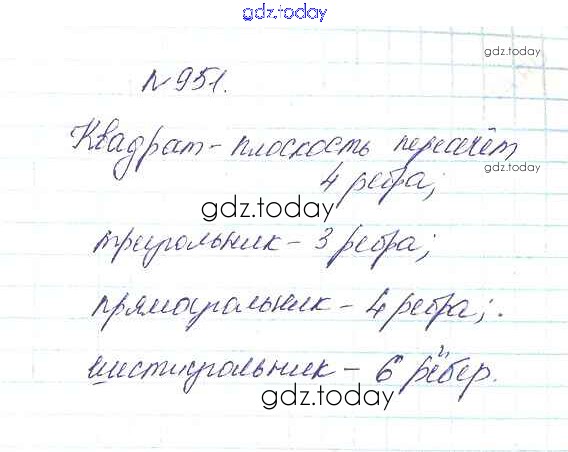 gdz.today
gdz.today
№951.
Квадрат - плоскость пересечёт
4 ребра;
gdz.today
треугольник - 3 ребра;
прямоугольник - 4 ребра;.
шестиугольник - 6 рёбер.
gdz.today